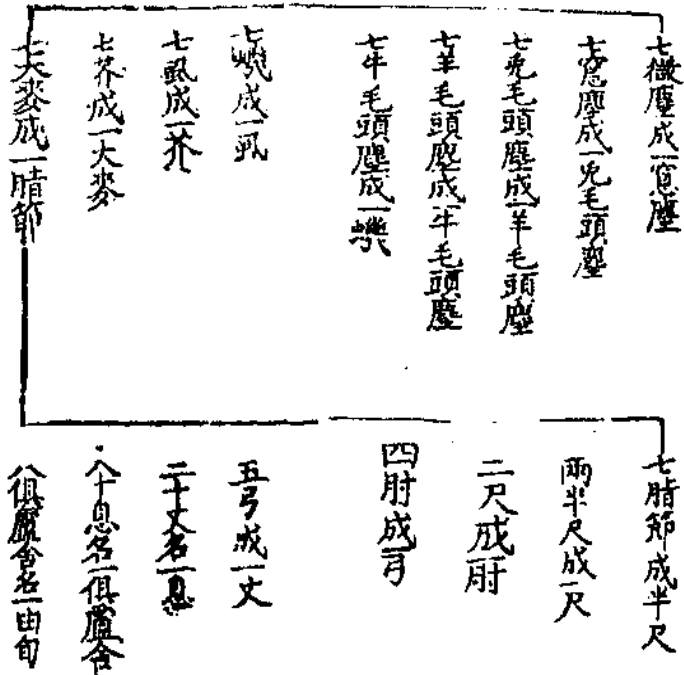 七微塵成一窻塵
七窻塵成一兎毛頭塵
七兎毛頭塵成一羊毛頭塵
七羊毛頭塵成一牛毛頭塵
七牛毛頭塵成一蟣
七蟣成一虱
七虱成一芥
七芥成一大麥
七大麥成一指節
七指節成半尺
兩半尺成一尺
二尺成一肘
四肘成一弓
五弓成一丈
二十丈名一息
八十息名一俱盧舍
八俱盧舍名一由旬